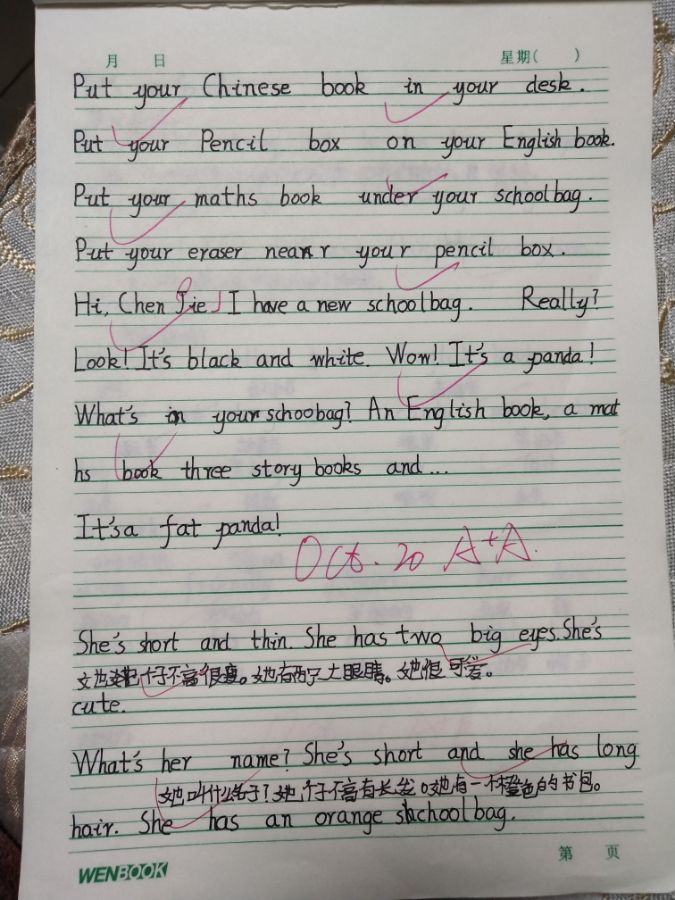 月 日 星期( )
Put your Chinese book in your desk.
Put your Pencil box on your English book.
Put your maths book under your schoolbag.
Put your eraser near your pencil box.
Hi, Chen Jie! I have a new schoolbag. Really?
Look! It's black and white. Wow! It's a panda!
What's in your schoobag? An English book, a mat
hs book three story books and...
It's a fat panda!
Oct. 20 A+A.
She's short and thin. She has two big eyes. She's
她个子不高很瘦。她有两只大眼睛。她很可爱。
cute.
What's her name? She's short and she has long
她叫什么名子?她个子不高有长发。她有一个橙色的书包。
hair. She has an orange schoolbag.
第 页
WENBOOK